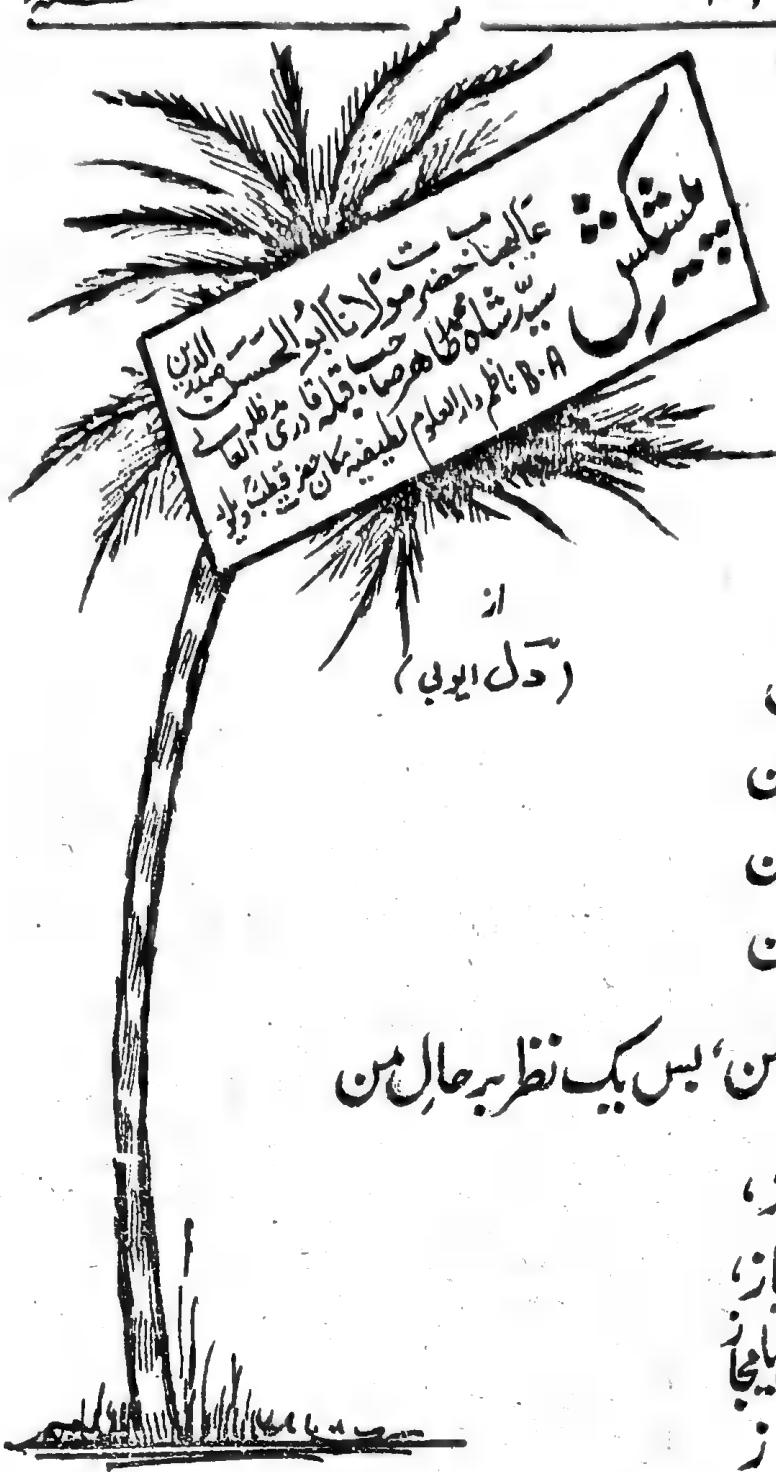 پیشکش
عالیجناب حضرت مولانا ابوالحسن صدرالدین
سید شاہ محمد طاہر صاحب قبلہ قادری مدظلہ العالی
B.A ناظم دارالعلوم لطیفیہ مکان حضرت قطب ویلور
از
(دل ایوبی)
ن
ن
ن
من، بس یک نظر بر حالِ من
ز،
از،
یا مجاز
ز